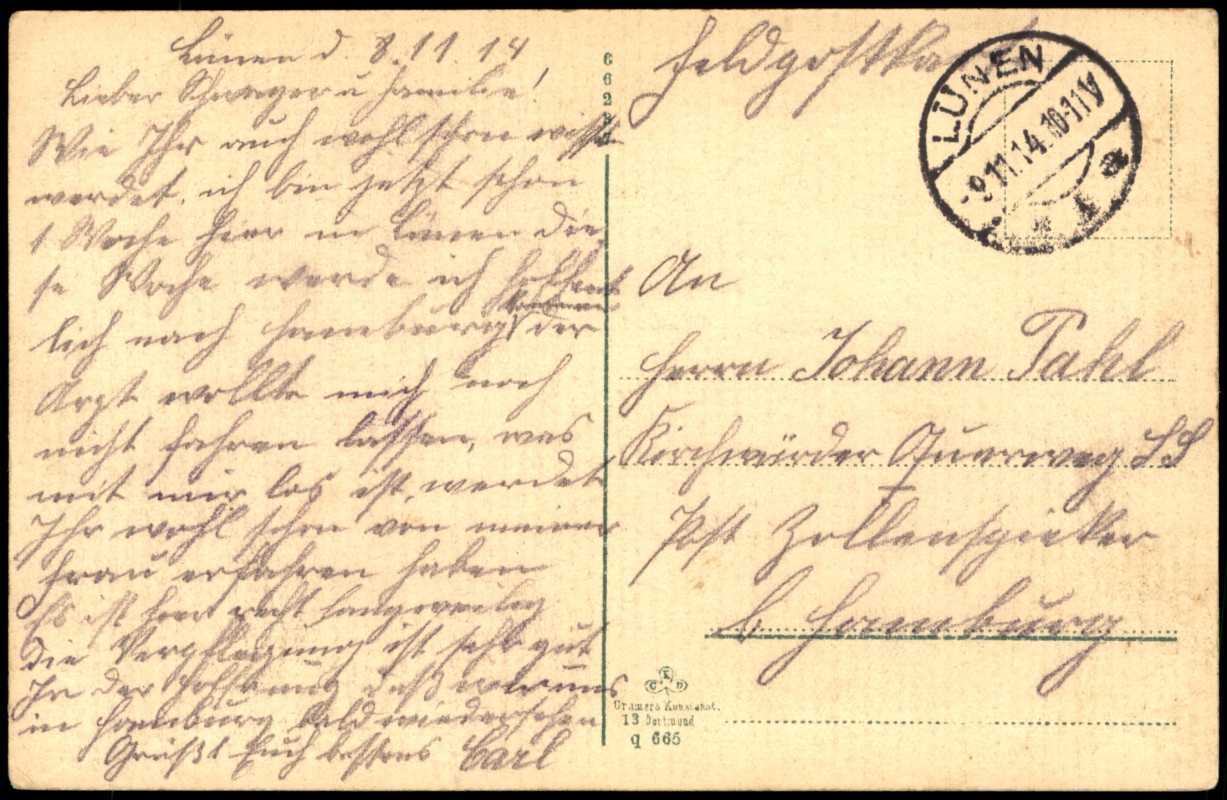 Lünen d. 8.11.14
Lieber Schwager u Familie!
Wie Ihr auch wohl schon wissen
werdet, ich bin jetzt schon
1 Woche hier in Lünen die
se Woche werde ich hoffent
lich nach Hamburg kommen der
Arzt wollte mich noch
nicht fahren lassen, was
mit mir los ist, werdet
Ihr wohl schon von meiner
Frau erfahren haben
Es ist hier recht langweilig
die Verpflegung ist sehr gut
In der Hoffnung daß wir uns
in Hamburg bald wiedersehen
Grüßt Euch bestens Carl
Feldpostkarte
LÜNEN
-9.11.14.10-11V
* 1 *
An
Herrn Johann Pahl
Kirchwärder Querweg
Post Zollenspieker
b. Hamburg
C K D
Cramers Kunstanst.
13 Dortmund
q 665